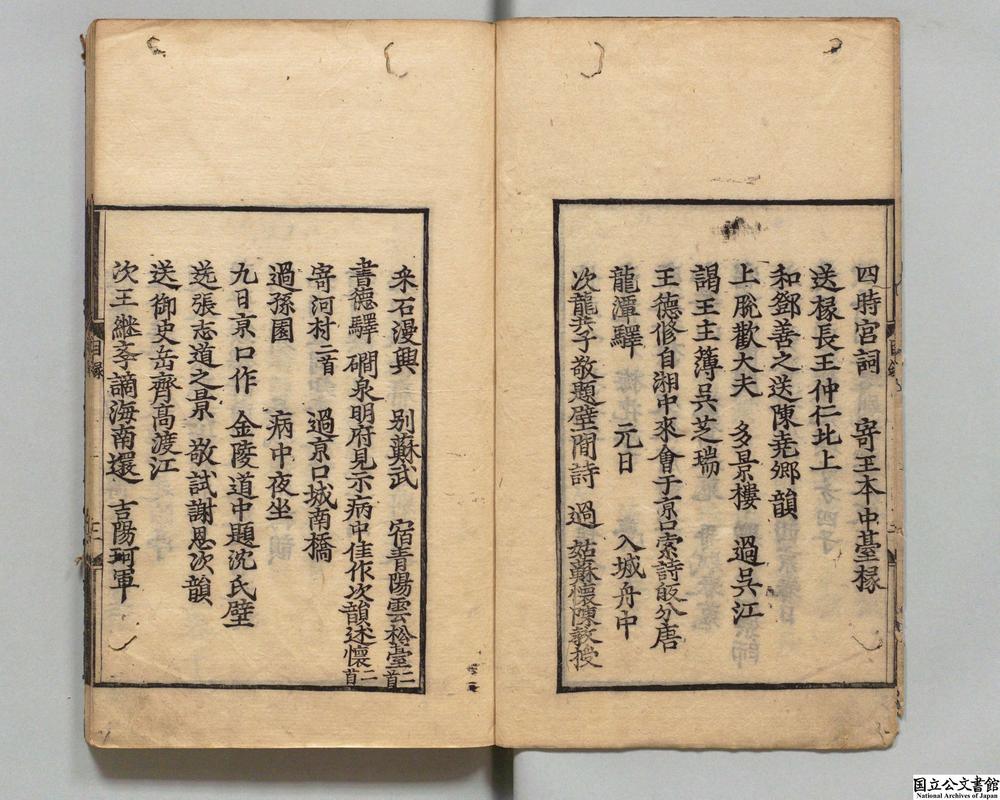 四時宮詞　寄王本中臺掾
送掾長王仲仁北上
和鄧善之送陳堯卿韻
上脫歡大夫　多景樓　過吳江
謁王主薄吳芝瑞
王德修自湘中來會于京口索詩皈分唐
龍潭驛　元日　入城舟中
次龍共子敬題壁間詩　過姑蘇懷陳教授
目錄
采石漫興　別蘇武　宿青陽雲松臺二首
書德驛　磵泉明府見示病中佳作次韻述懷二首
寄河村二首　過京口城南橋
過孫園　病中夜坐
九日京口作　金陵道中題沈氏壁
送張志道之景　敬試謝恩次韻
送御史岳齊高渡江
次王繼李謫海南還　吉陽珂軍
目錄
国立公文書館
National Archives of Japan